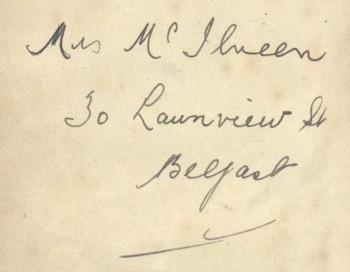 Mrs McIlveen
30 Launview St
Belfast